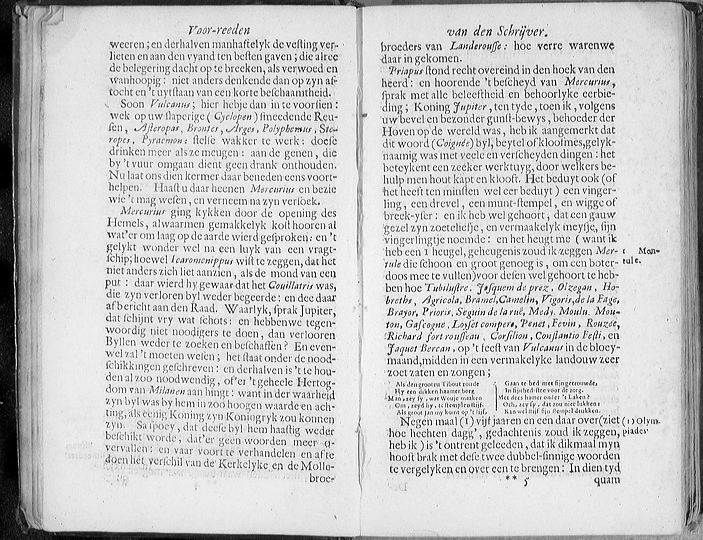 Voor-reeden
weeren; en derhalven manhaftelyk de vesting ver-
lieten en aan den vyand ten besten gaven; die alree
de belegering dacht op te breeken, als verwoed en
wanhoopig: niet anders denkende dan op zyn af-
tocht en 't uytstaan van een korte beschaamtheid.
Soon Vulcanus; hier hebje dan in te voorsien:
wek op uw slaperige (Cyclopen) smeedende Reu-
sen, Asteropar, Brontes, Arges, Polyphemus, Ste-
ropes, Pyracmon: stelse wakker te werk: doese
drinken meer als ze meugen: aan de genen, die
by 't vuur omgaan dient geen drank onthouden.
Nu laat ons dien kermer daar beneden eens voort-
helpen. Haast u daar heenen Mercurius en bezie
wie 't mag wesen, en verneem na zyn versoek.
Mercurius ging kykken door de opening des
Hemels, alwaarmen gemakkelyk kost hooren al
wat'er om laag op de aarde wierd gesproken: en 't
gelykt wonder wel na een luyk van een vragt-
schip; hoewel Icaromenippus wist te zeggen, dat het
niet anders zich liet aanzien, als de mond van een
put: daar wierd hy gewaar dat het Couillatris was,
die zyn verloren byl weder begeerde: en dee daar
af bericht aan den Raad. Waarlyk, sprak Jupiter,
dat schijnt vry wat schots: en hebbenwe tegen-
woordig niet noodigers te doen, dan verlooren
Byllen weder te zoeken en beschaffen? En even-
wel zal 't moeten wesen; het staat onder de nood-
schikkingen geschreven: en derhalven is 't te hou-
den al zoo noodwendig, of'er 't geheele Hertog-
dom van Milanen aan hingt: want in der waarheid
zyn byl was by hem in zoo hoogen waarde en ach-
ting, als eenig Koning zyn Koningryk zou konnen
zyn. Sa spoey, dat deese byl hem haastig weder
beschikt worde, dat'er geen woorden meer
vervallen: en vaar voort te verhandelen en af te
doen het verschil van de Kerkelyke en de Molle-
broe-
van den Schrijver.
broeders van Landerousse: hoe verre warenwe
daar in gekomen.
Priapus stond recht overeind in den hoek van den
heerd: en hoorende 't bescheyd van Mercurius,
sprak met alle beleeftheid en behoorlyke eerbie-
ding; Koning Jupiter, ten tyde, toen ik, volgens
uw bevel en bezonder gunst-bewys, behoeder der
Hoven op de wereld was, heb ik aangemerkt dat
dit woord (Coignée) byl, beytel of kloofmes, gelyk-
naamig was met veele en verscheyden dingen: het
beteykent een zeeker werktuyg, door welkers be-
hulp men hout kapt en klooft. Het beduyt ook (of
het heeft ten minsten wel eer beduyt) een vinger-
ling, een drevel, een munt-stempel, en wigge of
breek-yser: en ik heb wel gehoort, dat een gauw
gezel zyn zoeteliefje, en vermaakelyk meysje, sijn
vingerlingtje noemde: en het heugt me (want ik
heb een 1 heugel, geheugenis zoud ik zeggen Mer-
tule die schoon en groot genoeg is, om een boter-
doos mee te vullen) voor desen wel gehoort te heb-
ben hoe Tubilustre, Josquem de prez, Olzegan, Ho-
breths, Agricola, Bramel, Camelin, Vigoris, de la Fage,
Brayor, Prioris, Seguin de la rue, Medy, Moulu, Mou-
ton, Gascogne, Loyset compere, Penet, Fevin, Rouzée,
Richard fort rousseau, Corsilion, Constantio Festi, en
Jaquet Bercan, op 't feest van Vulcanus in de bloey-
maaand, midden in een vermakelyke landouw zeer
zoet zaten en zongen;
Als den grooten Tibout zoude
Hy een dikken haamer borg
Man, zey sy, was Woutje maaken
Och, zeyd hy, te stempleustijf:
Als groot Jan my komt op 't lijf,
Gaan te bed met sijn getrouwde,
In sijn bed-stee voor de zorg.
Met dees hamer onder 't Laken?
Och, zey sy, dat zou niet lukken:
Kan wel hijs sijn stempel drukken.
1 Men-
tule.
Negen maal (1) vijf jaaren en een daar over (ziet
hoe hechten dagg', gedachtenis zoud ik zeggen,
heb ik) is 't ontrent geleeden, dat ik dikmaal myn
hooft brak met dese twee dubbel-sinnige woorden
te vergelyken en over een te brengen: In dien tyd
(1) Olym-
piades
** 5
quam